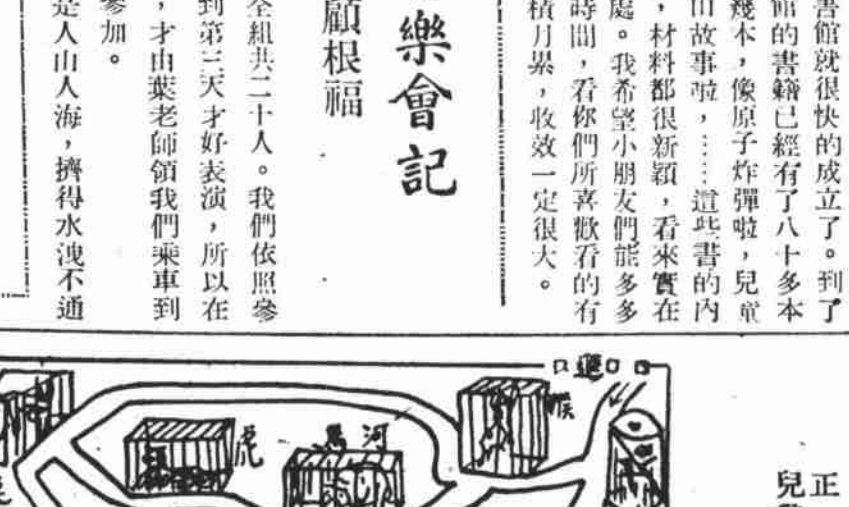 書館就很快的成立了。到了
館的書籍已經有了八十多本
幾本，像原子炸彈啦，兒童
山故事啦，……這些書的內
，材料都很新穎，看來實在
處。我希望小朋友們能多多
時間，看你們所喜歡看的有
積月累，收效一定很大。
樂會記
顧根福
全組共二十人。我們依照參
到第三天才好表演，所以在
，才由葉老師領我們乘車到
參加。
是人山人海，擠得水洩不通
猴
河馬
虎
正
兒